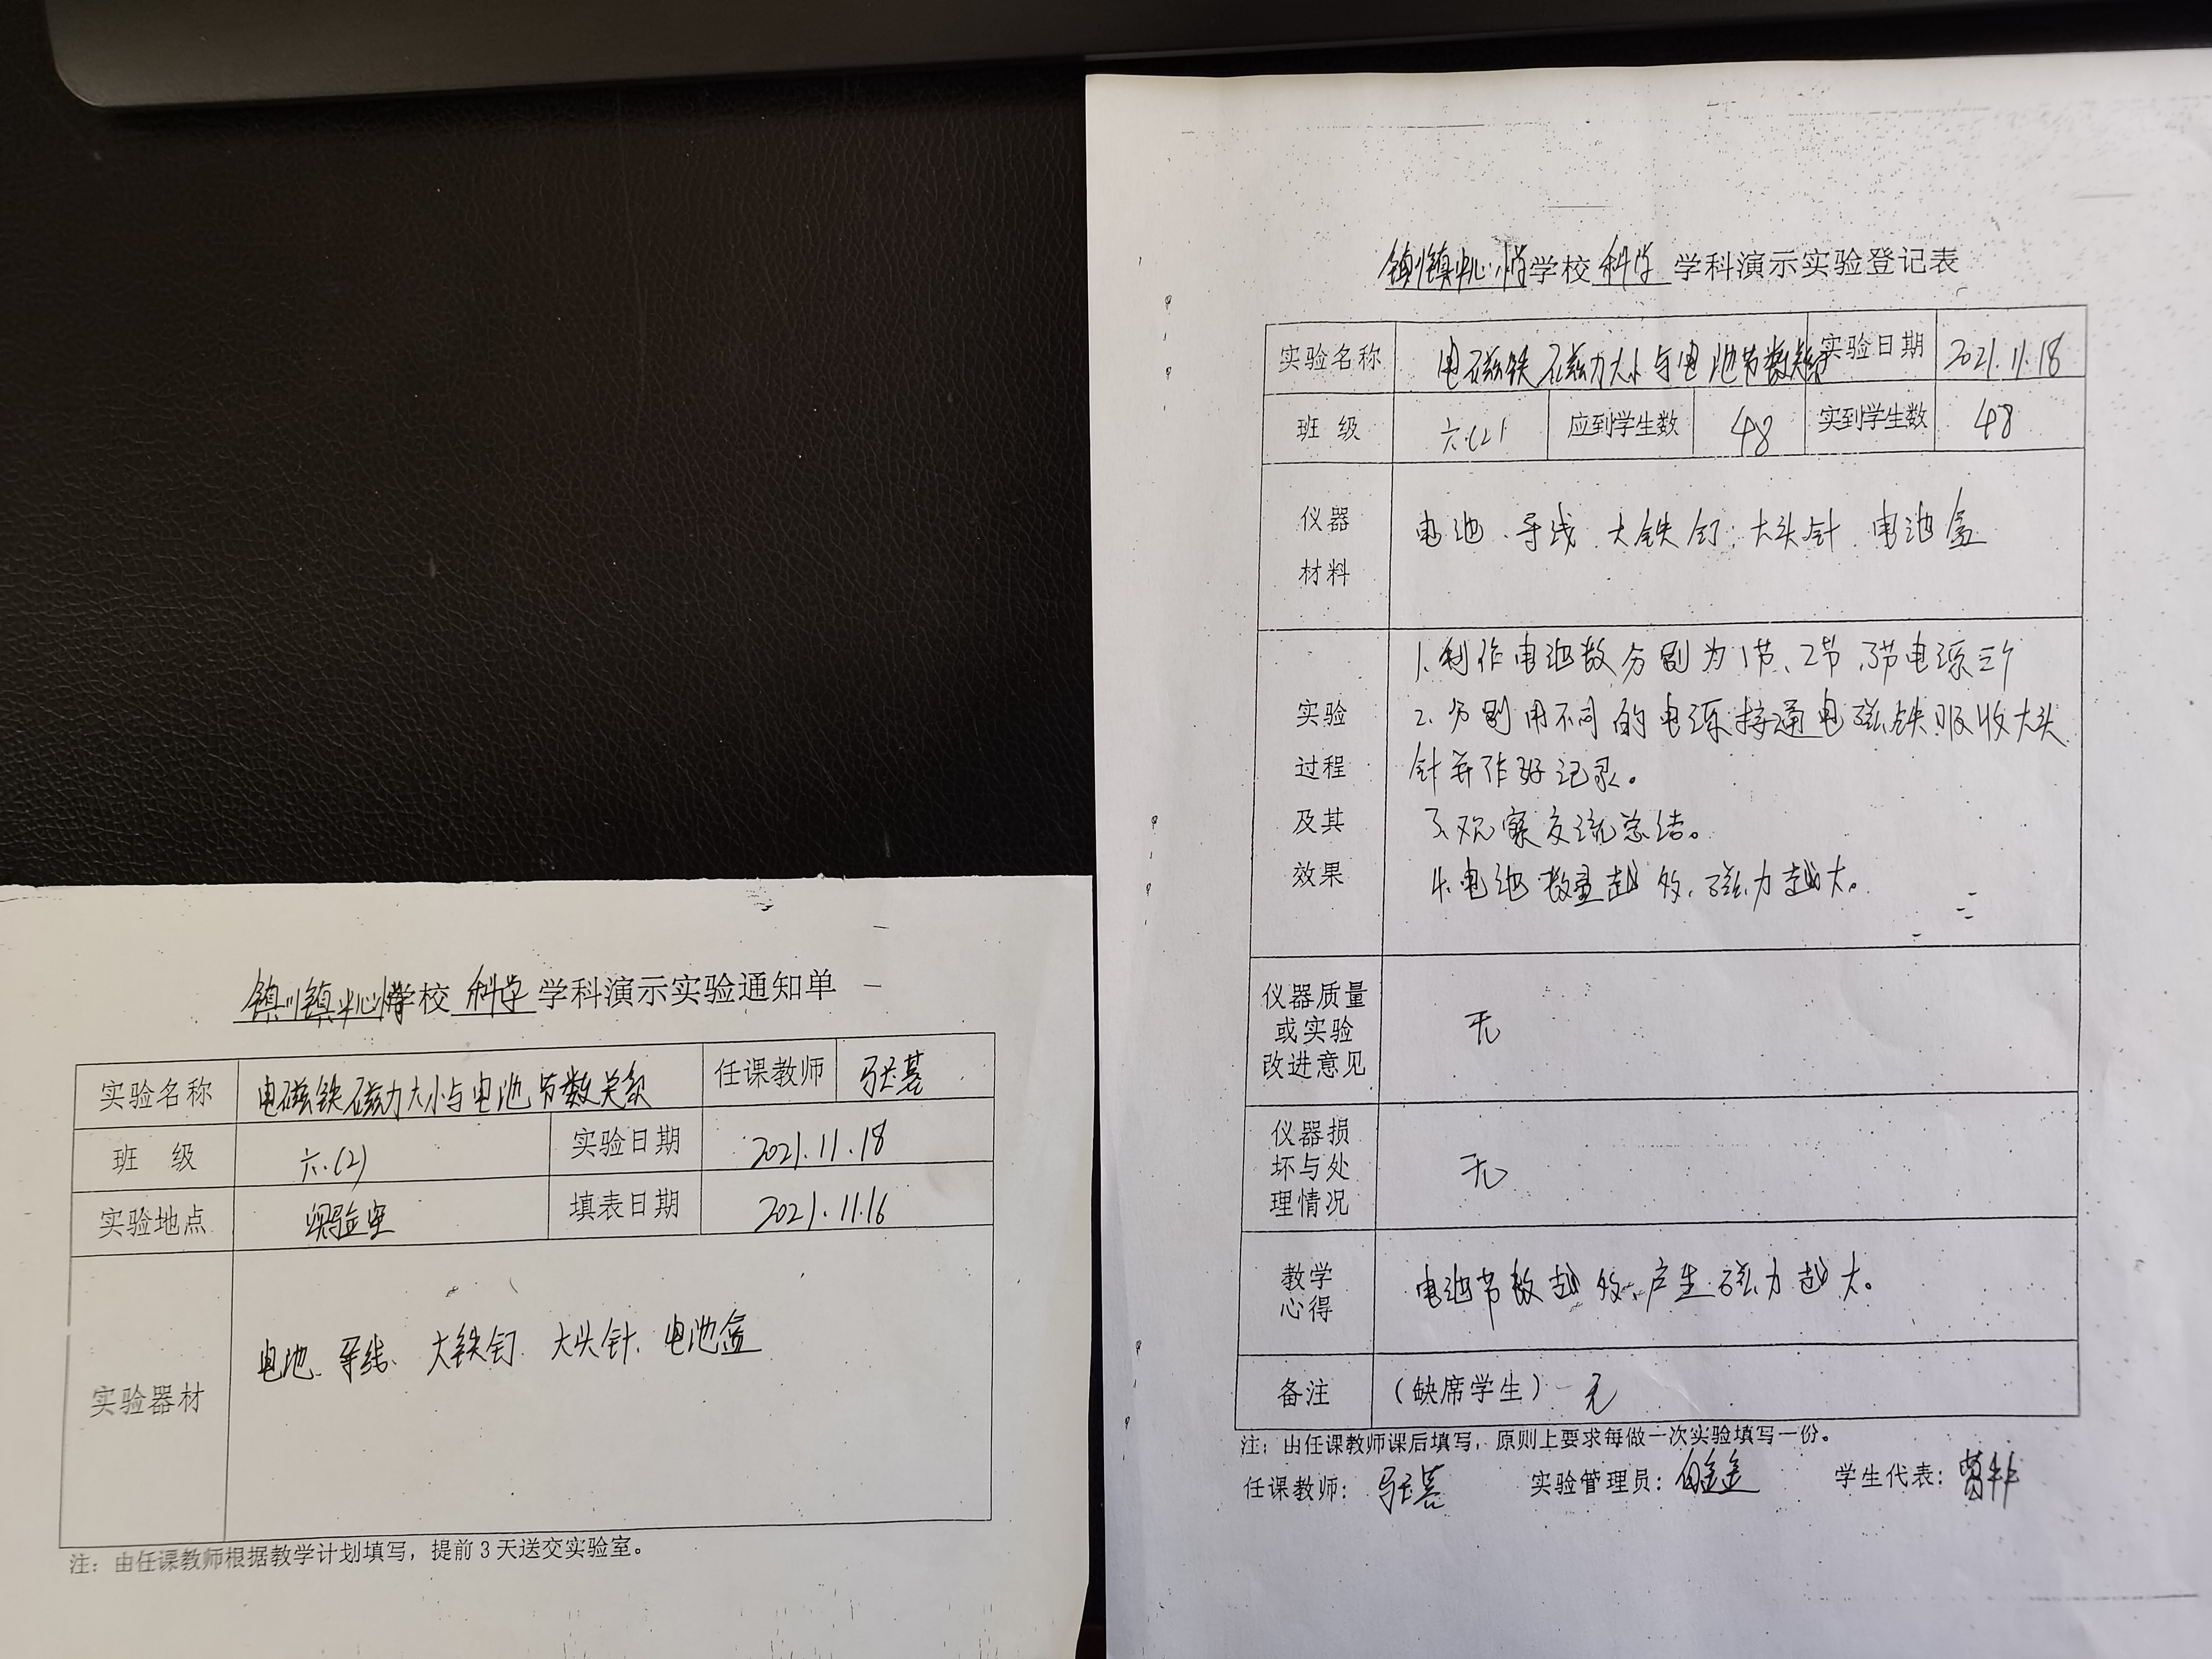 镇川镇中心小学学校 科学 学科演示实验通知单
实验名称 电磁铁磁力大小与电池节数关系 任课教师
班 级 六.(2) 实验日期 2021.11.18
实验地点 实验室 填表日期 2021.11.16
实验器材 电池、导线、大铁钉、大头针、电池盒
注：由任课教师根据教学计划填写，提前3天送交实验室。
镇川镇中心小学学校 科学 学科演示实验登记表
实验名称 电磁铁磁力大小与电池节数关系 实验日期 2021.11.18
班 级 六.(2) 应到学生数 48 实到学生数 48
仪器
材料
电池、导线 大铁钉、大头针、电池盒
实验
过程
及其
效果
1、制作电池数分别为1节、2节、3节电源三个
2、分别用不同的电源接通电磁铁吸收大头
针并作好记录。
3、观察交流总结。
4、电池数量越多，磁力越大。
仪器质量
或实验
改进意见
无
仪器损
坏与处
理情况
无
教学
心得
电池节数越多，产生磁力越大。
备注 （缺席学生） 无
注：由任课教师课后填写，原则上要求每做一次实验填写一份。
任课教师： 实验管理员： 学生代表：